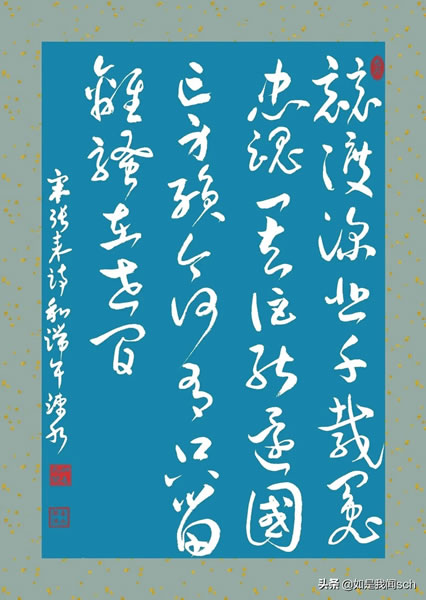 競渡深悲千載冤
忠魂一去詎能還國
亡身殞今何有只留
離騷在世間
宋張耒詩和端午
头条 @如是我闻sch